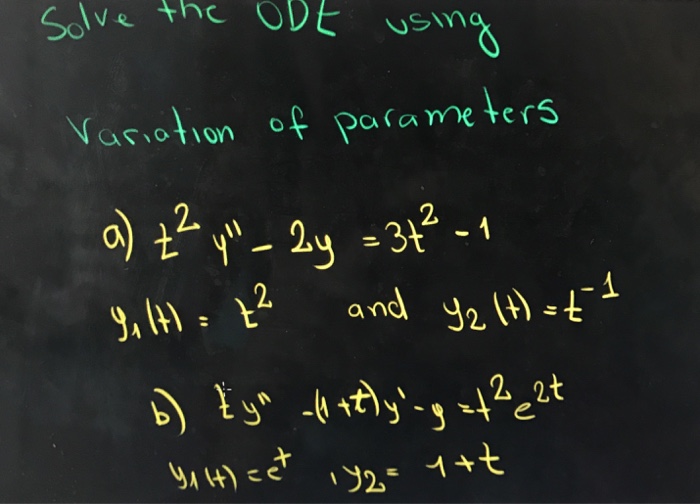 Solve the ODE using
Variation of parameters
a) t² y'' - 2y = 3t² - 1
y₁(t) = t² and y₂(t) = t⁻¹
b) ty'' -(1+t)y'-y=t²e²ᵗ
y₁(t)=eᵗ , y₂= 1+t